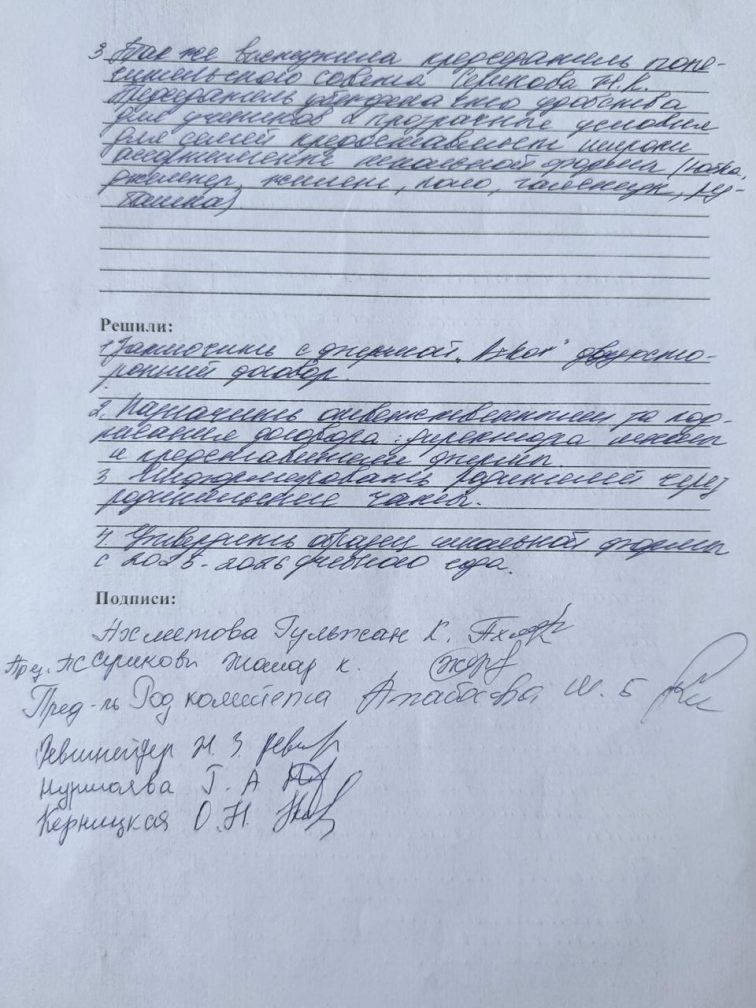 3. Так же выслушила председатель попе-
чительского совета Серикова Ж.К.
Председатель убеждена что удобства
для учеников и прозрачные условия
для семей предоставляют широки
ассортимент школьной формы (юбка,
джемпер, жилет, поло, галстук, ру-
башка)
Решили:
1. Заключить с фирмой двухсто-
ронний договор.
2. Назначить ответственными за под-
писания договора: директора школы
и представителем фирмы.
3. Информировать родителей через
родительские чаты.
4. Утвердить образец школьной формы
с 2025-2026 учебного года.
Подписи:
Ахметова Гульжан К.
Пред. ПС Серикова Жамар К.
Пред-ль Род комитета Ш. Б
Н. З.
Г. А
Керницкая О.Н.